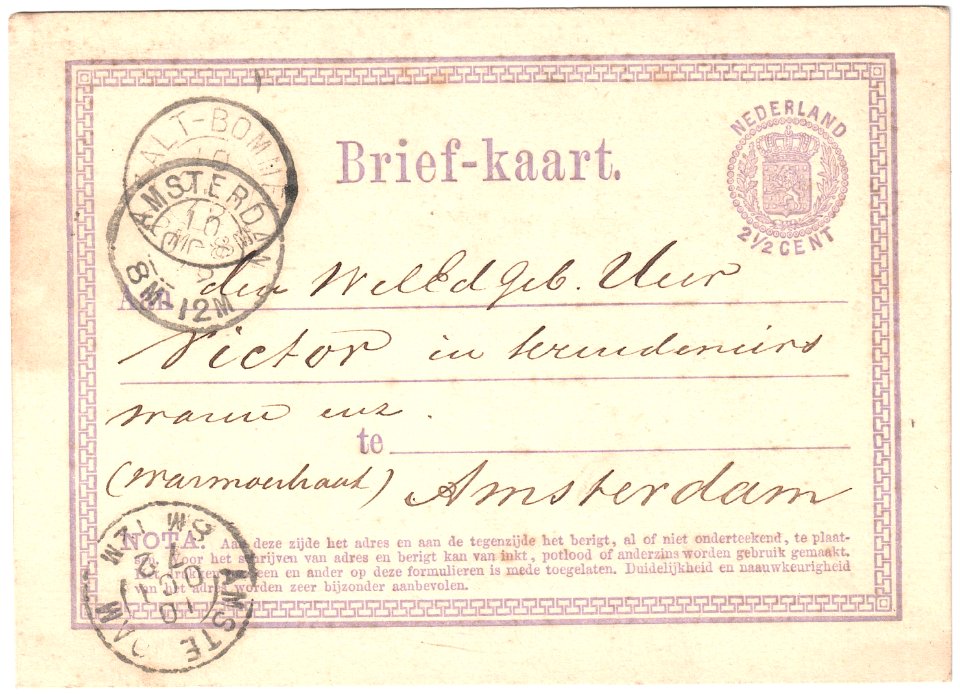 NEDERLAND
2½ CENT
Brief-kaart.
ALT-BOMM
AMSTERD
8M-12M
den WelEdgeb. Heer
Victor in kruideniers
waren enz.
te
(Warmoesstraat) Amsterdam
NOTA. Aan deze zijde het adres en aan de tegenzijde het berigt, al of niet onderteekend, te plaat-
voor het schrijven van adres en berigt kan van inkt, potlood of anderzins worden gebruik gemaakt.
een en ander op deze formulieren is mede toegelaten. Duidelijkheid en naauwkeurigheid
van het adres worden zeer bijzonder aanbevolen.
AMSTE DAM
8M 12M